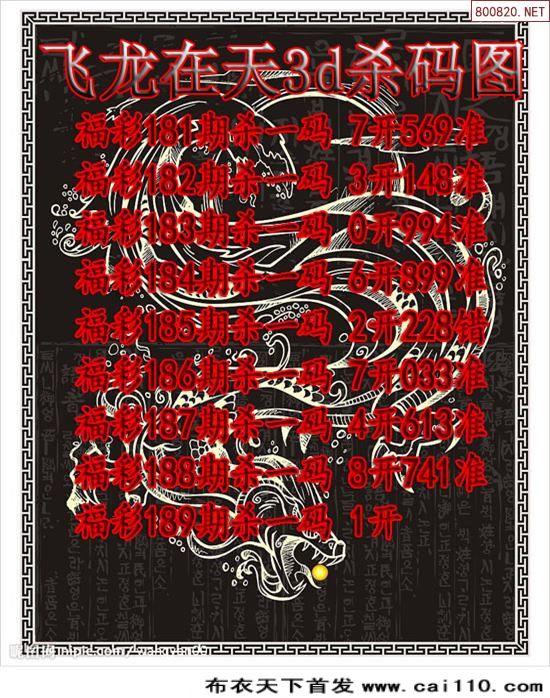 800820.NET
飞龙在天3d杀码图
福彩181期杀一码 7开569准
福彩182期杀一码 3开148准
福彩183期杀一码 0开994准
福彩184期杀一码 6开899准
福彩185期杀一码 2开228错
福彩186期杀一码 7开033准
福彩187期杀一码 4开613准
福彩188期杀一码 8开741准
福彩189期杀一码 1开
布衣天下首发 www.cai110.com